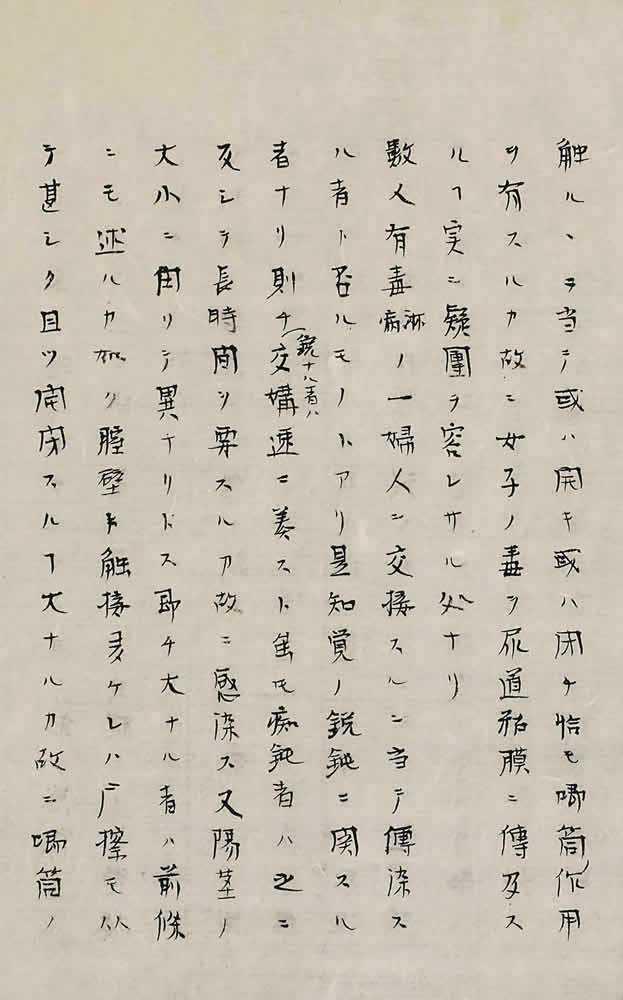 触ル丶ヲ当テ或ハ開キ或ハ閉チ恰モ喞筒作用
ヲ有スルカ故ニ女子ノ毒ヲ尿道粘膜ニ傳及ス
ルヿ実ニ疑團ヲ容レサル処ナリ
數人有毒淋病ノ一婦人ニ交接スルニ当テ傳染ス
ル者ト否ルモノトアリ是知覚ノ鋭鈍ニ関スル
者ナリ則チ鋭ナル者ハ交媾速ニ奏スト雖モ痴鈍者ハ之ニ
反シテ長時間ヲ要スルカ故ニ感染ス又陽莖ノ
大小ニ因リテ異ナリトス即チ大ナル者ハ前條
ニモ述ルカ如ク膣壁ト触接多ケレハ摩擦モ从
テ甚シク且ツ開閉スルヿ大ナルカ故ニ喞筒ノ